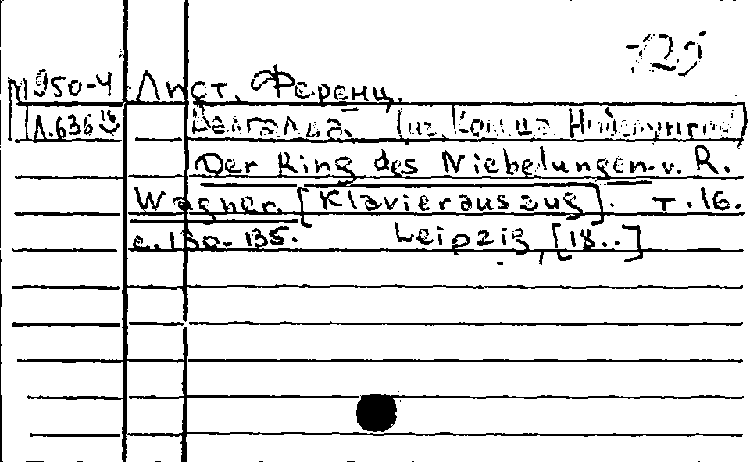 125
М950-4 Лист, Ференц.
Л.636 Валгалла. (из Кольца Нибелунгов)
Der Ring des Niebelungen v. R.
Wagner. [Klavierauszug]. т. 16.
с. 130-135. Leipzig, [18..]